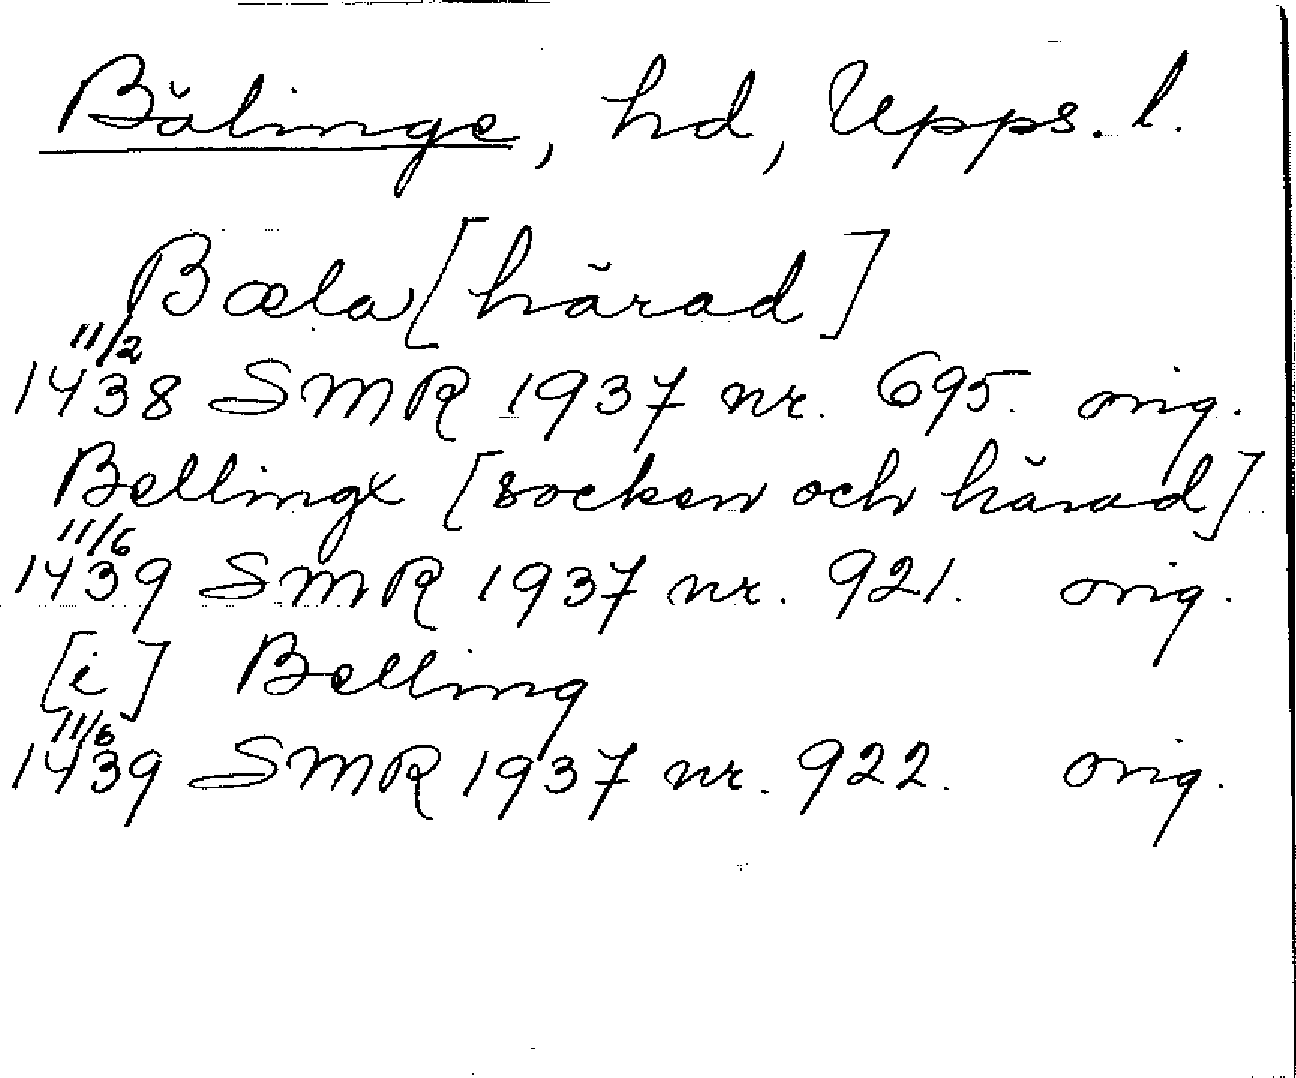 Bälinge, hd, Upps. l.
Bæla [härad]
11/2
1438 SMR 1937 nr. 695. orig.
Bellingx [socken och härad]
11/6
1439 SMR 1937 nr. 921. orig.
[i] Belling
11/6
1439 SMR 1937 nr. 922. orig.